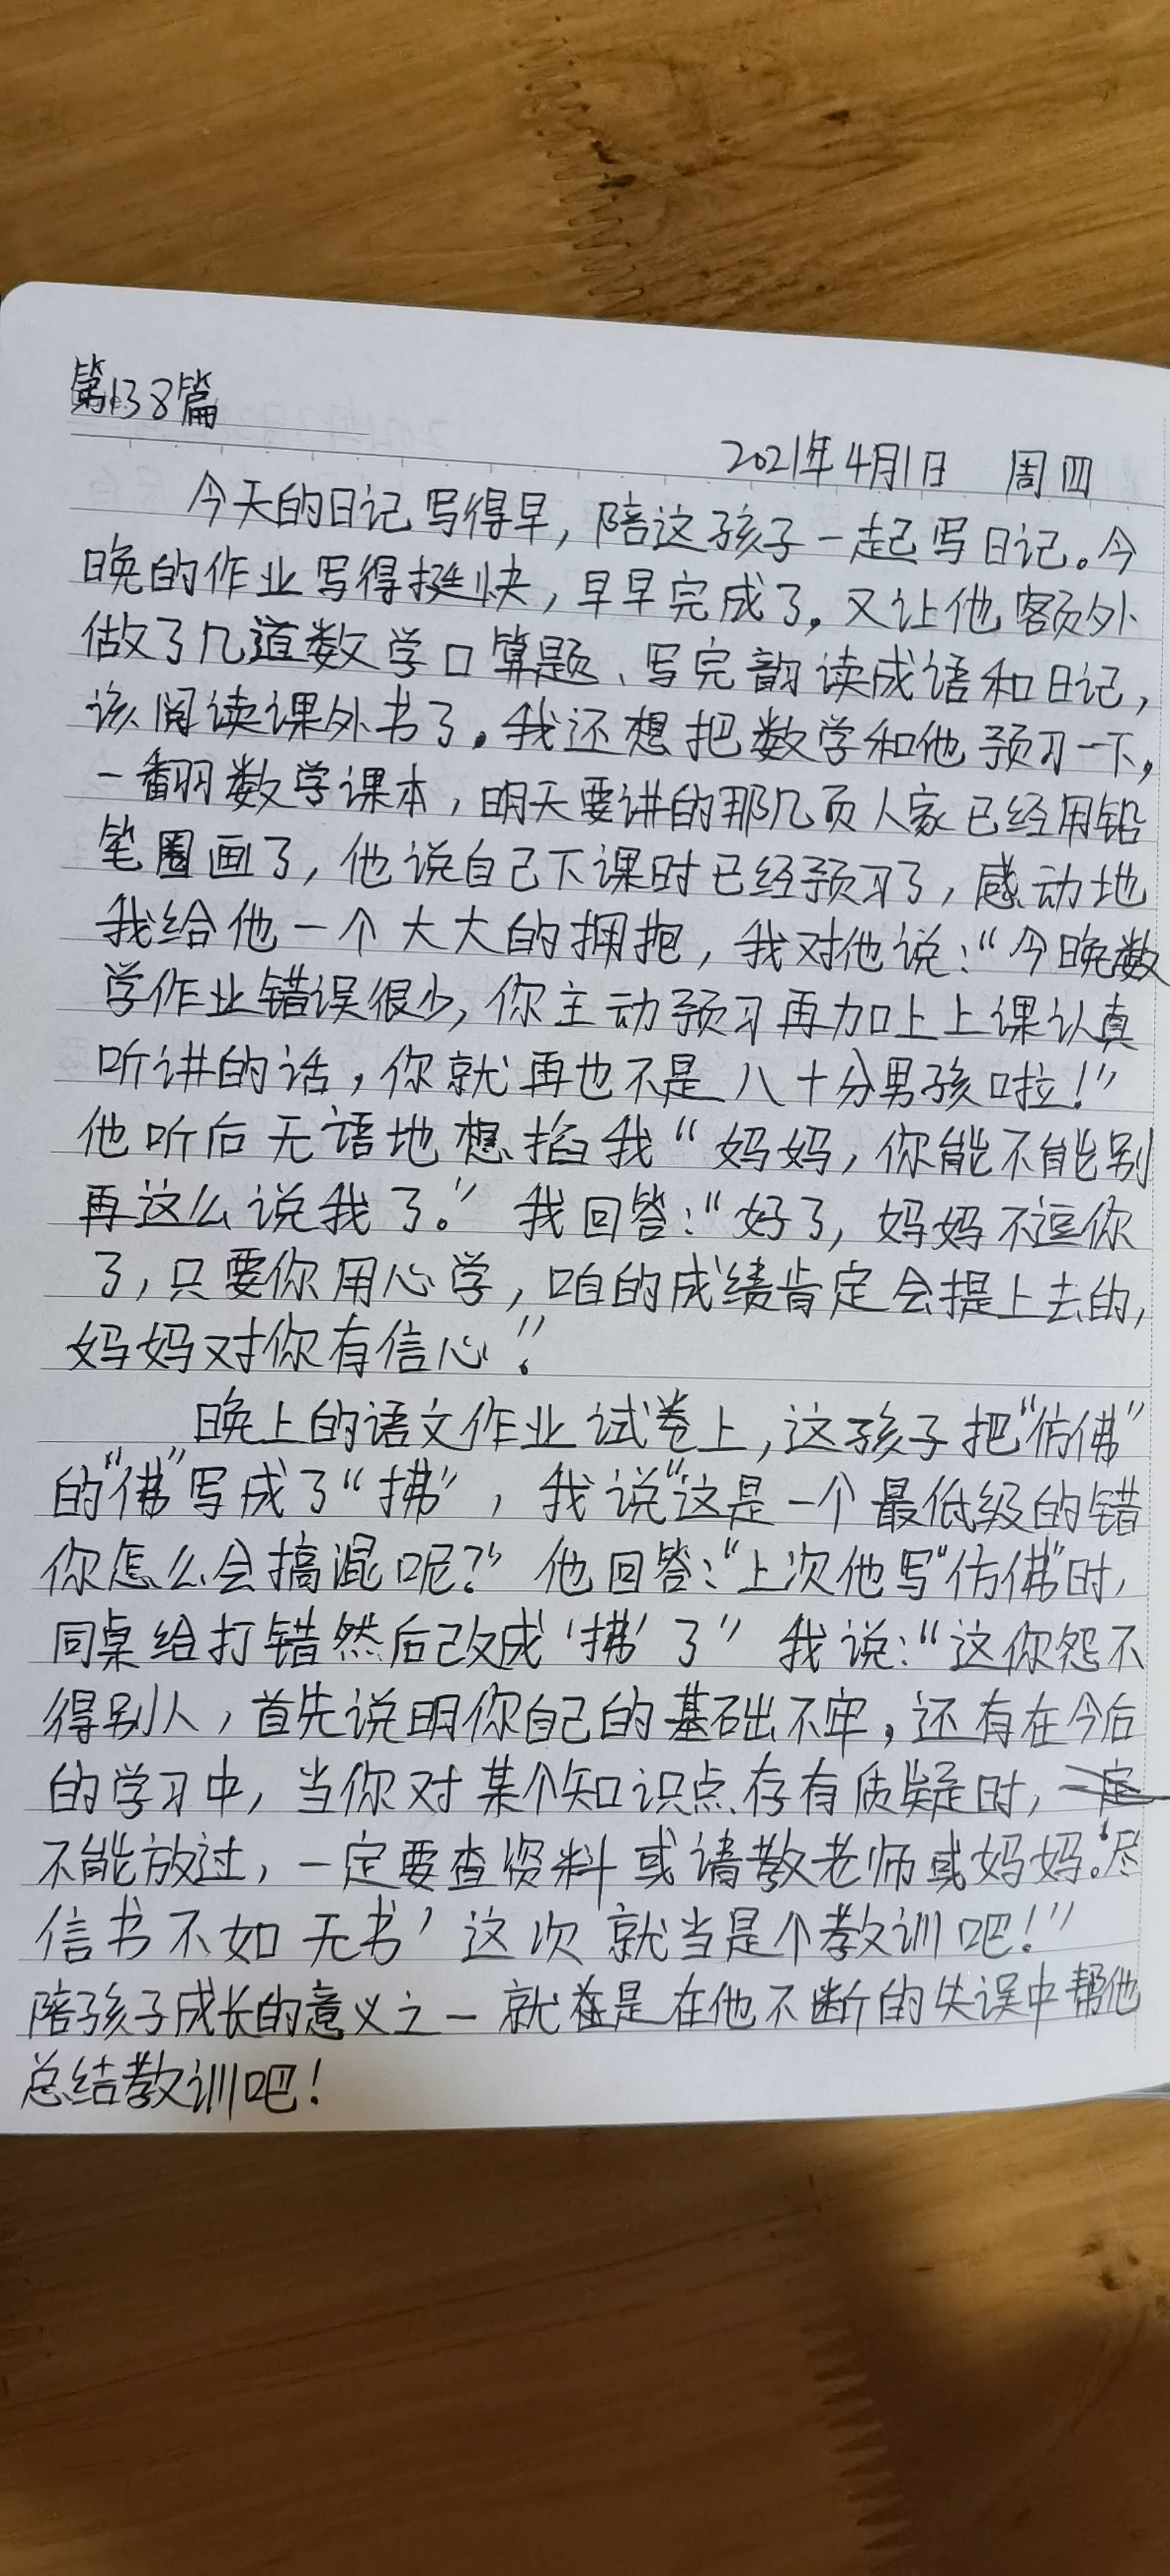 第138篇
2021年4月1日 周四
今天的日记写得早，陪这孩子一起写日记。今
晚的作业写得挺快，早早完成了。又让他额外
做了几道数学口算题、写完韵读成语和日记，
该阅读课外书了。我还想把数学和他预习一下，
一翻数学课本，明天要讲的那几页人家已经用铅
笔圈画了，他说自己下课时已经预习了，感动地
我给他一个大大的拥抱，我对他说：“今晚数
学作业错误很少，你主动预习再加上上课认真
听讲的话，你就再也不是八十分男孩啦！”
他听后无语地想掐我“妈妈，你能不能别
再这么说我了。”我回答：“好了，妈妈不逗你
了，只要你用心学，咱的成绩肯定会提上去的，
妈妈对你有信心。”
晚上的语文作业试卷上，这孩子把“仿佛”
的“佛”写成了“拂”，我说“这是一个最低级的错
你怎么会搞混呢？”他回答：“上次他写“仿佛”时，
同桌给打错然后改成‘拂’了”我说：“这你怨不
得别人，首先说明你自己的基础不牢，还有在今后
的学习中，当你对某个知识点存有质疑时，一定
不能放过，一定要查资料或请教老师或妈妈。‘尽
信书不如无书’这次就当是个教训吧！”
陪孩子成长的意义之一就是在他不断的失误中帮他
总结教训吧！